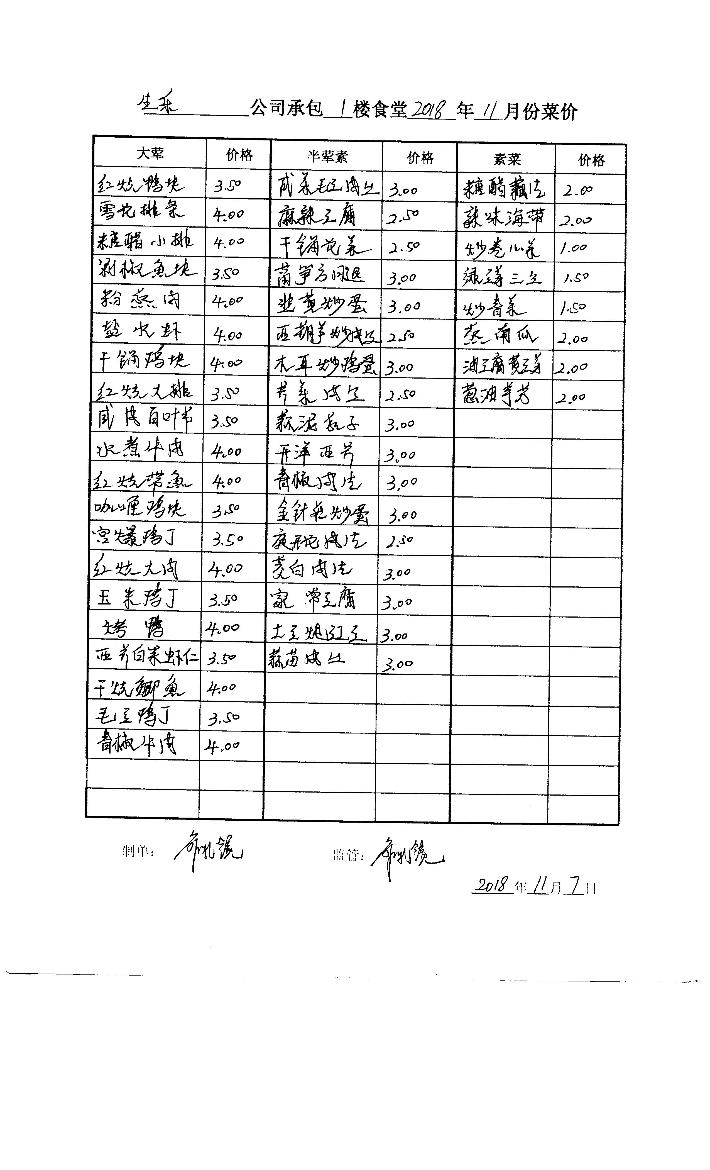 生乐 公司承包 1 楼食堂 2018 年 11 月份菜价
大荤 价格 半荤素 价格 素菜 价格
红烧鸭块 3.50 咸菜毛豆肉丝 3.00 糖醋藕片 2.00
雪花排条 4.00 麻辣豆腐 2.50 辣味海带 2.00
糖醋小排 4.00 干锅花菜 2.50 炒卷心菜 1.00
剁椒鱼块 3.50 莴笋方腿 3.00 绿芽三丝 1.50
粉蒸肉 4.00 韭黄炒蛋 3.00 炒青菜 1.50
盐水虾 4.00 西葫芦炒肉片 2.50 蒸南瓜 2.00
干锅鸡块 4.00 木耳炒鸡蛋 3.00 油豆腐黄豆芽 2.00
红烧大排 3.50 芹菜肉丝 2.50 葱油芋艿 2.00
咸肉百叶节 3.50 蒜泥茄子 3.00
水煮牛肉 4.00 开洋西芹 3.00
红烧带鱼 4.00 青椒肉片 3.00
咖喱鸡块 3.50 金针菇炒蛋 3.00
宫爆鸡丁 3.50 花肉片 2.50
红烧大肉 4.00 茭白肉片 3.00
玉米鸡丁 3.50 家常豆腐 3.00
烤鸭 4.00 土豆烧豇豆 3.00
西芹白果虾仁 3.50 蒜苗肉丝 3.00
干烧鲫鱼 4.00
毛豆鸡丁 3.50
青椒牛肉 4.00
制单： 监管：
2018 年 11 月 7 日